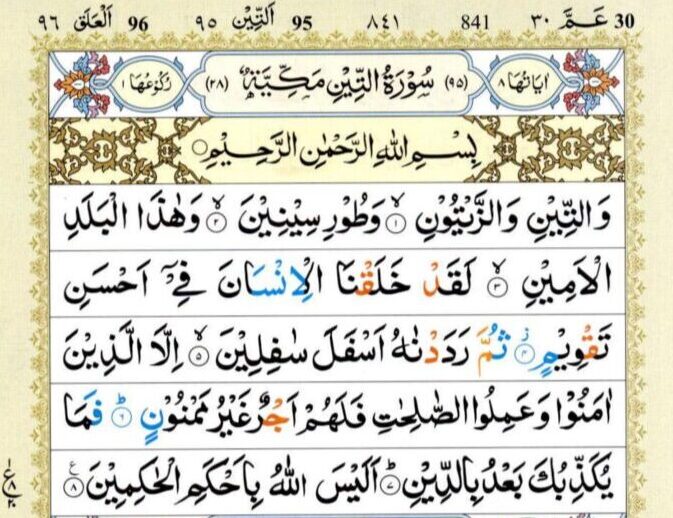 30 عَمَّ ٣٠ 841 ٨٤١ 95 اَلتِّيْن ٩٥ 96 اَلْعَلَق ٩٦
اٰيَاتُهَا ٨ (٩٥) سُوْرَةُ التِّيْنِ مَكِّيَّةٌ (٢٨) رُكُوْعُهَا ١
بِسْمِ اللّٰهِ الرَّحْمٰنِ الرَّحِيْمِ
وَالتِّيْنِ وَالزَّيْتُوْنِ ۙ۝١ وَطُوْرِ سِيْنِيْنَ ۙ۝٢ وَهٰذَا الْبَلَدِ
الْاَمِيْنِ ۙ۝٣ لَقَدْ خَلَقْنَا الْاِنْسَانَ فِيْۤ اَحْسَنِ
تَقْوِيْمٍ ؗ۝٤ ثُمَّ رَدَدْنٰهُ اَسْفَلَ سٰفِلِيْنَ ۙ۝٥ اِلَّا الَّذِيْنَ
اٰمَنُوْا وَعَمِلُوا الصّٰلِحٰتِ فَلَهُمْ اَجْرٌ غَيْرُ مَمْنُوْنٍ ؕ۝٦ فَمَا
يُكَذِّبُكَ بَعْدُ بِالدِّيْنِ ؕ۝٧ اَلَيْسَ اللّٰهُ بِاَحْكَمِ الْحٰكِمِيْنَ ۝٨
١
ع
٨
٢٠